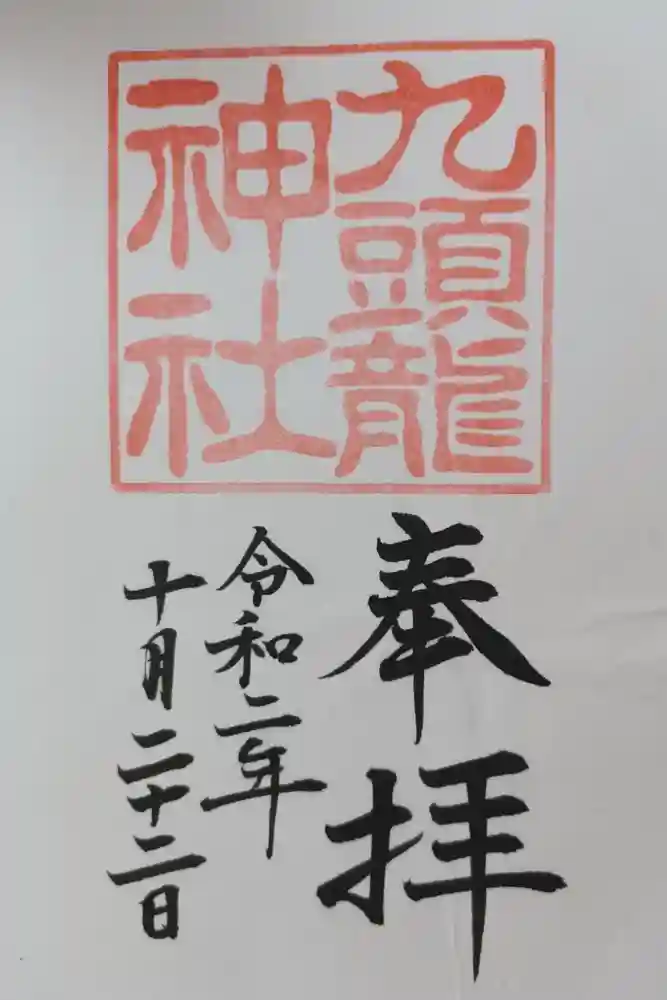 九頭龍
神社
奉拝
令和二年
十月二十二日